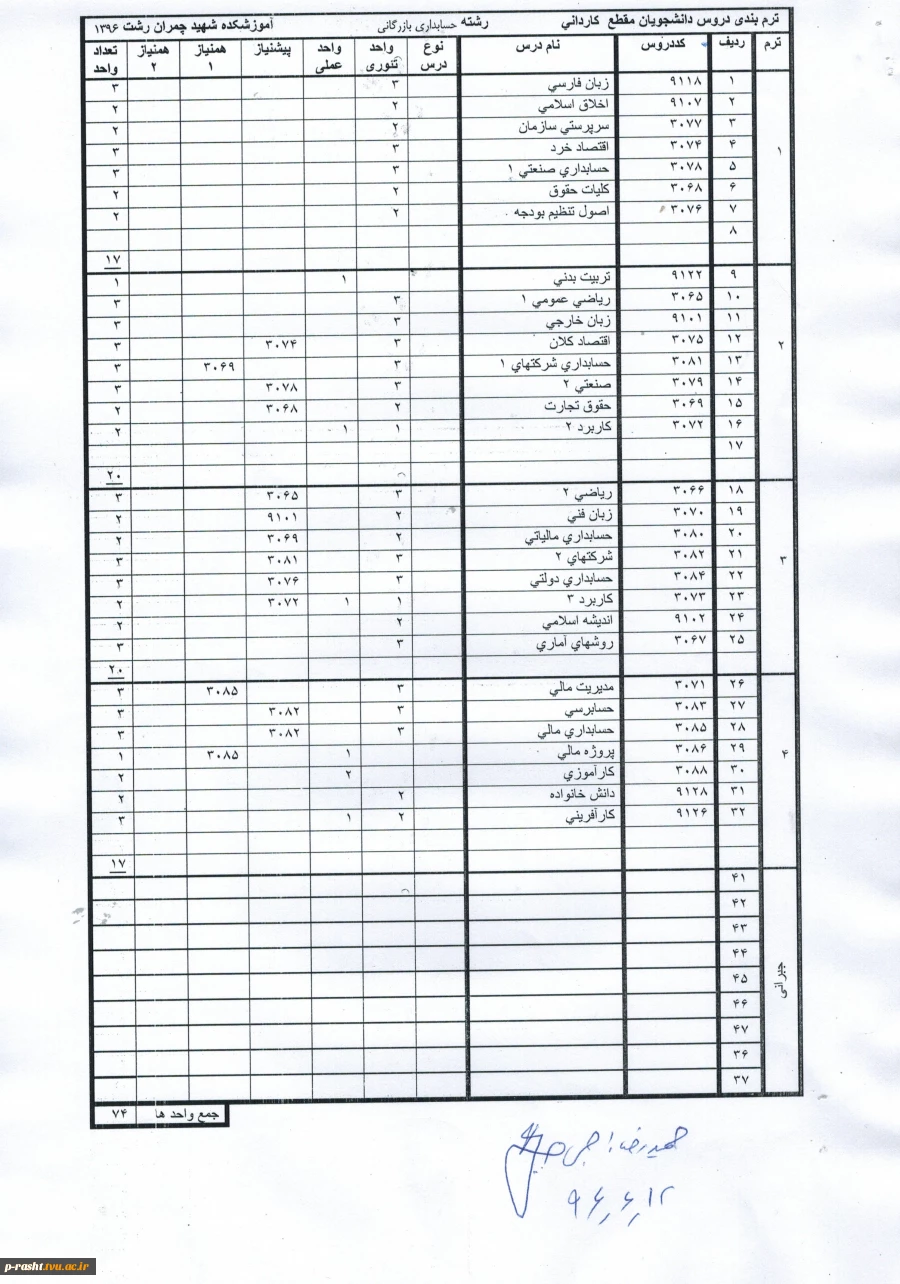 ترم بندی دروس دانشجویان مقطع کارداني رشته حسابداری بازرگانی آموزشکده شهید چمران رشت ۱۳۹۶
ترم ردیف کددروس نام درس نوع درس واحد تئوری واحد عملی پیشنیاز همنیاز ۱ همنیاز ۲ تعداد واحد
۱
۱ ۹۱۱۸ زبان فارسي ۳ ۳
۲ ۹۱۰۷ اخلاق اسلامي ۲ ۲
۳ ۳۰۷۷ سرپرستي سازمان ۲ ۲
۴ ۳۰۷۴ اقتصاد خرد ۳ ۳
۵ ۳۰۷۸ حسابداري صنعتي ۱ ۳ ۳
۶ ۳۰۶۸ کلیات حقوق ۲ ۲
۷ ۳۰۷۶ اصول تنظیم بودجه ۲ ۲
۸
۱۷
۲
۹ ۹۱۲۲ تربیت بدني ۱ ۱
۱۰ ۳۰۶۵ ریاضي عمومي ۱ ۳ ۳
۱۱ ۹۱۰۱ زبان خارجي ۳ ۳
۱۲ ۳۰۷۵ اقتصاد کلان ۳ ۳۰۷۴ ۳
۱۳ ۳۰۸۱ حسابداري شرکتهاي ۱ ۳ ۳۰۶۹ ۳
۱۴ ۳۰۷۹ صنعتي ۲ ۳ ۳۰۷۸ ۳
۱۵ ۳۰۶۹ حقوق تجارت ۲ ۳۰۶۸ ۲
۱۶ ۳۰۷۲ کاربرد ۲ ۱ ۱ ۲
۱۷
۲۰
۳
۱۸ ۳۰۶۶ ریاضي ۲ ۳ ۳۰۶۵ ۳
۱۹ ۳۰۷۰ زبان فني ۲ ۹۱۰۱ ۲
۲۰ ۳۰۸۰ حسابداري مالیاتي ۲ ۳۰۶۹ ۲
۲۱ ۳۰۸۲ شرکتهاي ۲ ۳ ۳۰۸۱ ۳
۲۲ ۳۰۸۴ حسابداري دولتي ۳ ۳۰۷۶ ۳
۲۳ ۳۰۷۳ کاربرد ۳ ۱ ۱ ۳۰۷۲ ۲
۲۴ ۹۱۰۲ اندیشه اسلامي ۲ ۲
۲۵ ۳۰۶۷ روشهاي آماري ۳ ۳
۲۰
۴
۲۶ ۳۰۷۱ مدیریت مالي ۳ ۳۰۸۵ ۳
۲۷ ۳۰۸۳ حسابرسي ۳ ۳۰۸۲ ۳
۲۸ ۳۰۸۵ حسابداري مالي ۳ ۳۰۸۲ ۳
۲۹ ۳۰۸۶ پروژه مالي ۱ ۳۰۸۵ ۱
۳۰ ۳۰۸۸ کارآموزي ۲ ۲
۳۱ ۹۱۲۸ دانش خانواده ۲ ۲
۳۲ ۹۱۲۶ کارآفریني ۲ ۱ ۳
۱۷
جبرانی
۴۱
۴۲
۴۳
۴۴
۴۵
۴۶
۴۷
۳۶
۳۷
جمع واحد ها ۷۴
حمیدرضا
۹۶٫۶٫۱۲
p-rasht.tvu.ac.ir